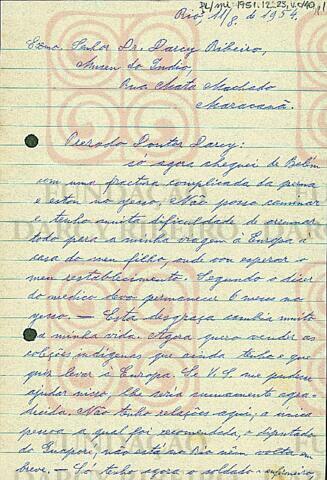 Rio, 11/8. de 1954.
Exmo. Senhor Dr. Darcy Ribeiro,
Museu do Indio,
Rua Mata Machado
Maracanã.
Prezado Doutor Darcy:
só agora cheguei de Belém
com uma fractura complicada da perna
e estou no gesso. Não posso caminar
e tenho muita dificuldade de arrumar
todo para a minha viagem à Europa à
casa do meu filho, onde vou esperar o
meu restablecimento. Segundo o dizer
do medico devo permanecer 6 meses no
gesso. — Esta desgraça cambia muito
a minha vida. Agora quero vender as
coleções indigenas que ainda tenho e que
quiz levar à Europa. Se V.S. me pudera
ajudar nisso, lhe será sumamente agra-
decida. Não tenho relações aqui, a unica
pessoa a qual foi recomendada, o deputado
do Guaporé, não está no Rio nem volta em
breve. — Só tenho agora o soldado-enfermeiro,
FUNDAÇÃO
DARCY RIBEIRO